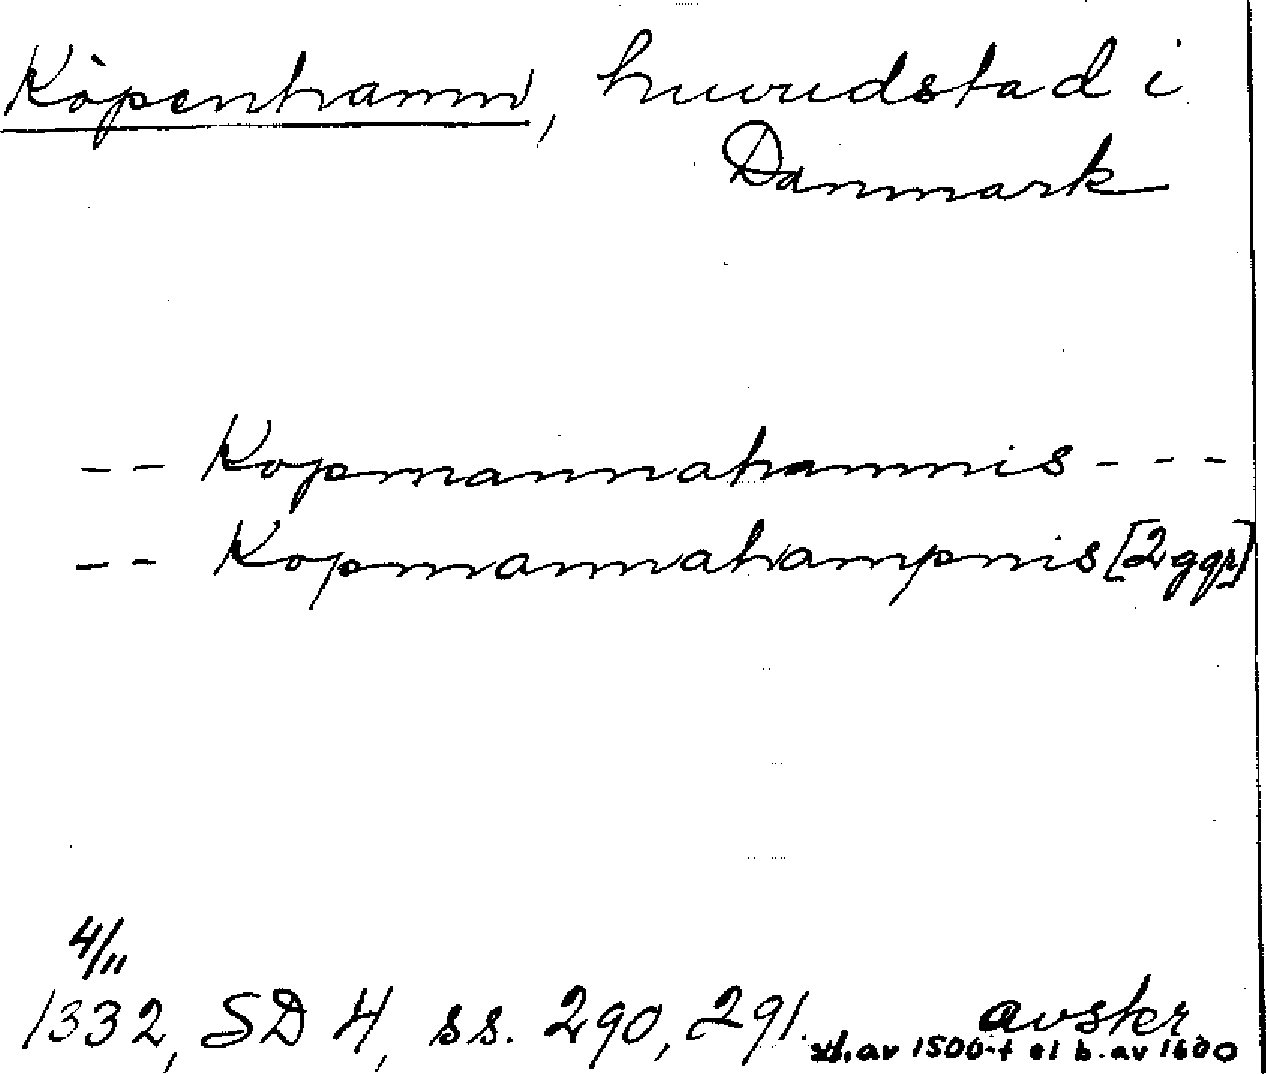 Köpenhamn, huvudstad i
Danmark
-- Kopmannahamnis---
-- Kopmannahampnis [2 ggr]
4/11
1332, SD 4, ss. 290, 291. avskr.
sl. av 1500-t el b. av 1600